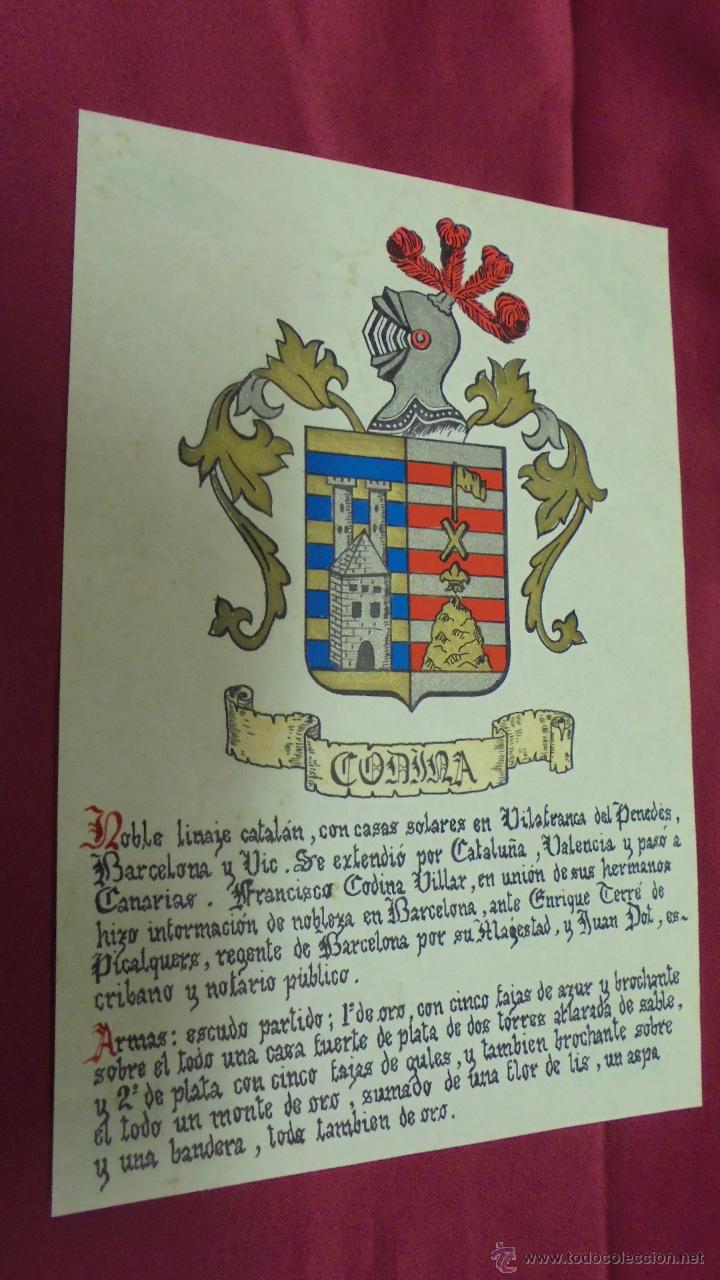 CODINA
Noble linaje catalán, con casas solares en Vilafranca del Penedés,
Barcelona y Vic. Se extendió por Cataluña, Valencia y pasó a
Canarias. Francisco Codina Villar, en unión de sus hermanos
hizo información de nobleza en Barcelona, ante Enrique Terré de
Picalquers, regente de Barcelona por su Magestad, y Juan Dot, es-
cribano y notario público.
Armas: escudo partido; 1º de oro, con cinco fajas de azur y brochante
sobre el todo una casa fuerte de plata de dos torres aclarada de sable,
y 2º de plata con cinco fajas de gules, y tambien brochante sobre
el todo un monte de oro, sumado de una flor de lis, un aspa
y una bandera, todo tambien de oro.
www.todocoleccion.net